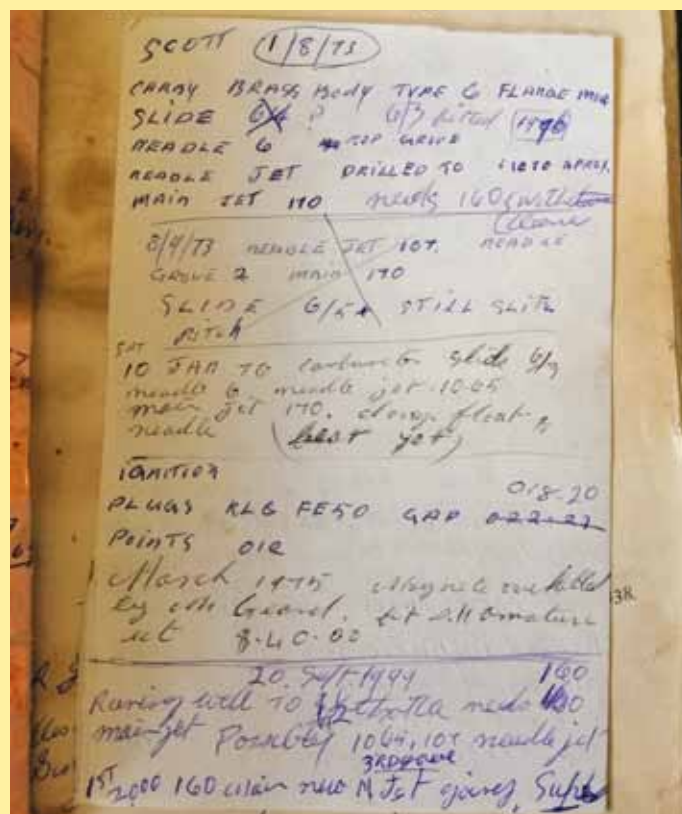 SCOTT 1/8/73
CARBY BRASS BODY TYPE 6 FLANGE
SLIDE 6/4 ? 6/3 fitted 1976
NEADLE 6 TOP GROVE
NEADLE JET DRILLED TO APROX.
MAIN JET 170 needs 160 (with
cleaner
8/4/73 NEADLE JET 107. NEADLE
GROVE 2 MAIN 170
SLIDE 6/5 STILL SLITE
RITCH
SAT
10 JAN 76 carburetor slide 6/3
needle 6 needle jet .1065
main jet 170. float
needle (best yet)
IGNITION
018-20
PLUGS KLG FE50 GAP 022-27
POINTS 012
March 1975 Magneto
by Mr armature
8-40-00
38
20. Sept 1999 160
Running well to 1/2 throttle needs 160
main jet Possibly 1064, 107 needle jet
3RD GROVE
1ST 2000 160 main new N Jet